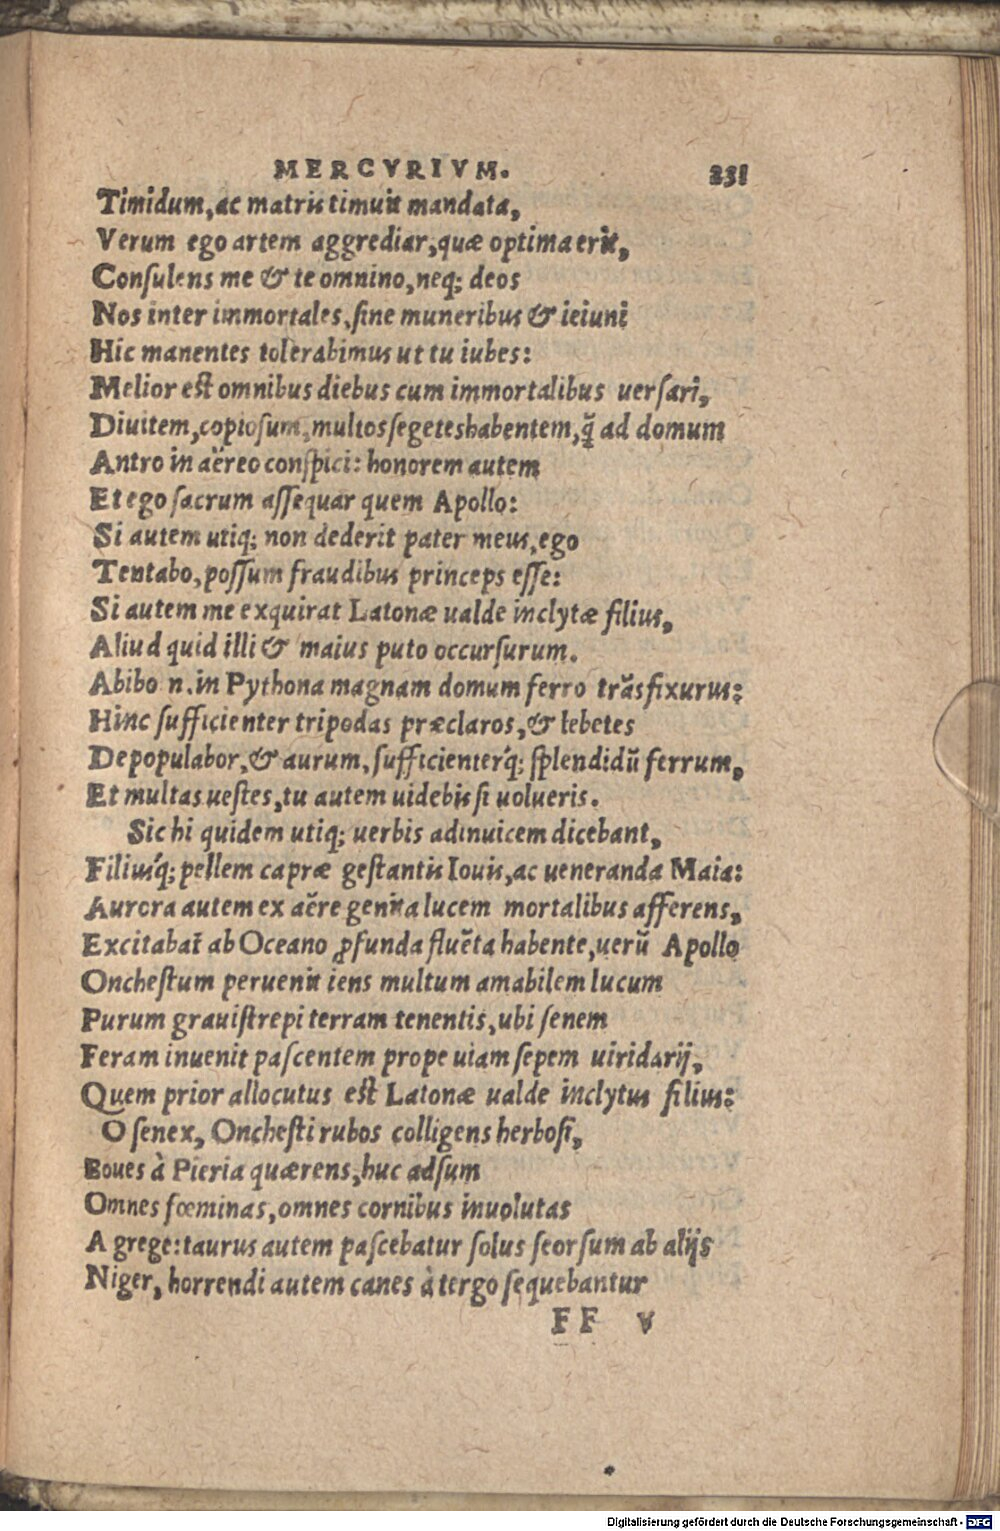 MERCVRIVM. 231
Timidum, ac matris timuit mandata,
Verum ego artem aggrediar, quæ optima erit,
Conſulens me & te omnino, neq; deos
Nos inter immortales, ſine muneribus & ieiuni
Hic manentes tolerabimus ut tu iubes:
Melior eſt omnibus diebus cum immortalibus uerſari,
Diuitem, copioſum, multos ſegetes habentem, q̃ ad domum
Antro in aëreo conſpici: honorem autem
Et ego ſacrum aſſequar quem Apollo:
Si autem utiq; non dederit pater meus, ego
Tentabo, poſſum fraudibus princeps eſſe:
Si autem me exquirat Latonæ ualde inclytæ filius,
Aliud quid illi & maius puto occurſurum.
Abibo n. in Pythona magnam domum ferro trãsfixurus:
Hinc ſufficienter tripodas præclaros, & lebetes
Depopulabor, & aurum, ſufficienterq́; ſplendidũ ferrum,
Et multas ueſtes, tu autem uidebis ſi uolueris.
Sic hi quidem utiq; uerbis adinuicem dicebant,
Filiusq́; pellem capræ geſtantis Iouis, ac ueneranda Maia:
Aurora autem ex aëre genita lucem mortalibus afferens,
Excitabat̃ ab Oceano ꝓfunda fluẽta habente, uerũ Apollo
Oncheſtum peruenit iens multum amabilem lucum
Purum grauiſtrepi terram tenentis, ubi ſenem
Feram inuenit paſcentem prope uiam ſepem uiridarij,
Quem prior allocutus eſt Latonæ ualde inclytus filius:
O ſenex, Oncheſti rubos colligens herboſi,
Boues à Pieria quærens, huc adſum
Omnes fœminas, omnes cornibus inuolutas
A grege: taurus autem paſcebatur ſolus ſeorſum ab alijs
Niger, horrendi autem canes à tergo ſequebantur
FF v
Digitalisierung gefördert durch die Deutsche Forschungsgemeinschaft - DFG